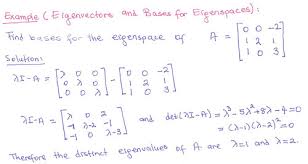 Example (Eigenvectors and Bases for Eigenspaces):
Find bases for the eigenspace of A = [0 0 -2; 1 2 1; 1 0 3]
Solution:
λI-A = [λ 0 0; 0 λ 0; 0 0 λ] - [0 0 -2; 1 2 1; 1 0 3]
λI-A = [λ 0 2; -1 λ-2 -1; -1 0 λ-3] and det(λI-A) = λ³-5λ²+8λ-4=0
= (λ-1)(λ-2)²=0
Therefore the distinct eigenvalues of A are λ=1 and λ=2.